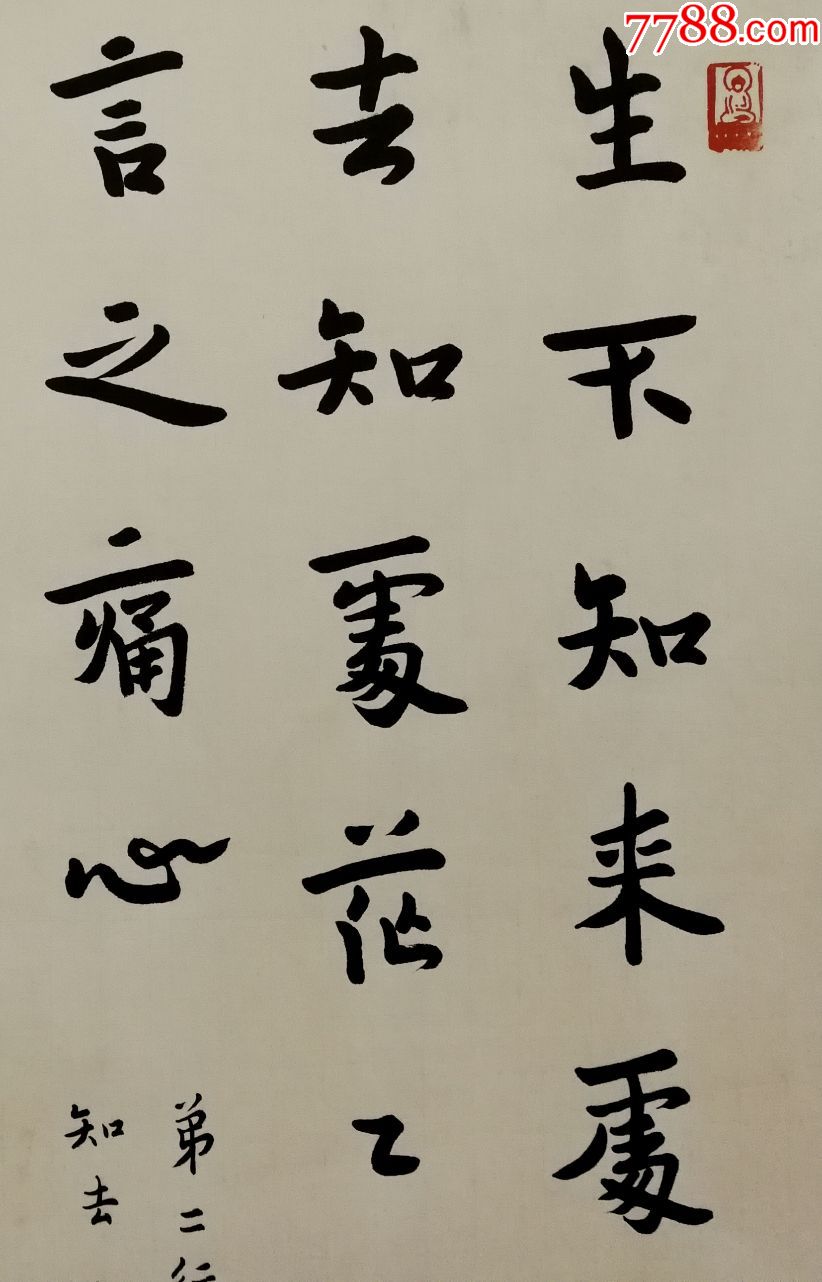 7788.com
生不知来處
去知處茫〻
言之痛心
第二行
知去